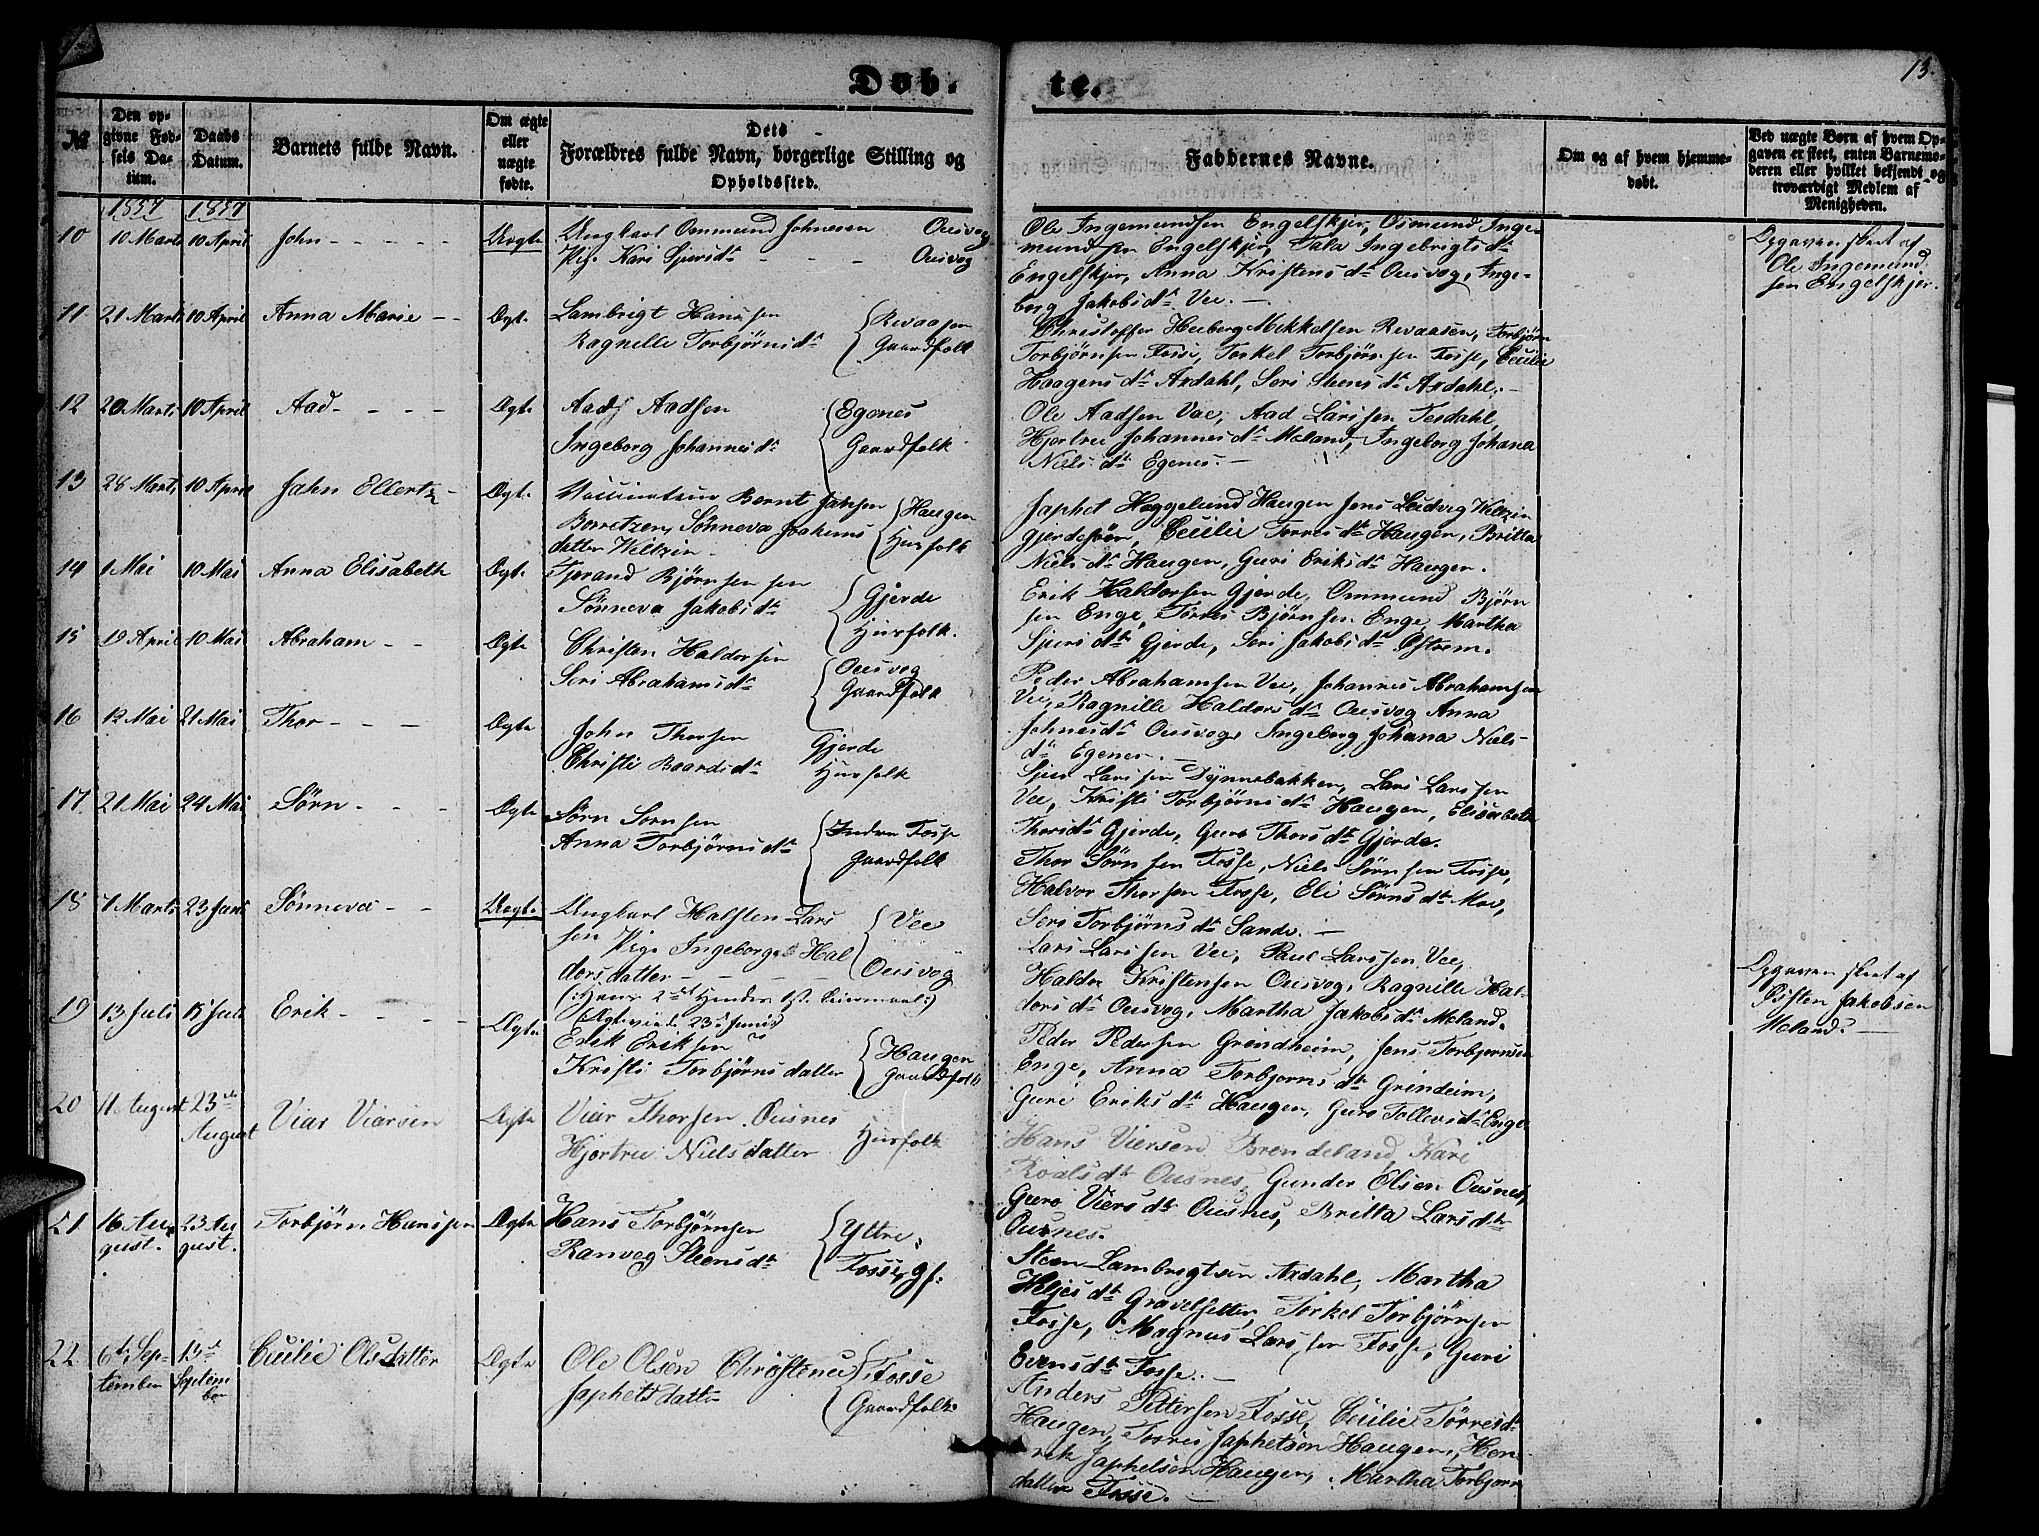 13.
Døb. te.
№
Den opgivne Fødsels Datum.
Daabs Datum.
Barnets fulde Navn.
Om ægte eller uægte fødte.
Dets Forældres fulde Navn, borgerlige Stilling og Opholdssted.
Faddernes Navne.
Om og af hvem hjemmedøbt.
Ved uægte Børn af hvem Opgaven er skeet, enten Barnemoderen eller hvilket bekjendt og troværdigt Medlem af Menigheden.
1857 1857
10 10 Marts 10 April John Uægte
Ungkarl Ommund Johnesen Ousvog
Pige Kari Sjursdr Ousvog
Ole Ingemundsen Engelskjer, Osmund Inge-
mundsen Engelskjer, Tala Ingebrigtsdr
Engelskjer, Anna Kristensdr Ousvog, Inge-
borg Jakobsdr Vee.
Opgaven skeet af
Ole Ingemund
sen Engelskjer.
11 21 Marts 10 April Anna Marie Ægt.
Lambrigt Hansen Revaasen
Ragnille Torbjørnsdr Gaardfolk
Christoffer Heiberg Mikkelsen Revaasen, Torbjørn
Torbjørnsen Fosse, Torkel Torbjørnsen Fosse, Cecilie
Haagensdr Axdahl, Seri Steensdr Axdahl.
12 20 Marts 10 April Aad Ægt.
Aad Aadsen Egenes
Ingeborg Johannesdr Gaardfolk
Ole Aadsen Vae, Aad Larssen Tesdahl,
Hjertru Johannesdr Moland, Ingeborg Johana
Nielsdr Egenes.
13 28 Marts 10 April Jahn Ellertz Ægt.
Bernt Jansen Haugen
Borretzen, Sønneva Joakims Husfolk
datter Weltzin
Japhet Hoggelund Haugen Jens Ludvig Weltzin
Gjerdesøen, Cecilie Torresdr Haugen, Britta
Nielsdr Haugen, Guri Eriksdr Haugen.
14 1 Mai 10 Mai Anna Elisabeth Ægt.
Tjerand Bjørnsen Gjerde
Sønneva Jakobsdr Husfolk.
Erik Haldorsen Gjerde, Ommund Bjørn
sen Enge, Torres Bjørnsen Enge, Martha
Sjursdr Gjerde, Seri Jakobsdr Østrem.
15 19 April 10 Mai Abraham Ægte
Christen Haldorsen Ousvog
Seri Abrahamsdr Gaardfolk
Peder Abrahamsen Vee, Johannes Abrahamsen
Vee, Ragnille Haldorsdr Ousvog Anna
Johnesdr Ousvog, Ingeborg Johana Niels-
dr Egenes.
16 12 Mai 21 Mai Thor Ægte
John Thorsen Gjerde
Christi Baardsdr Husfolk
Sjur Larssen Dynnebakken, Lars Larssen
Vee, Kristi Torbjørnsdr Haugen, Elisabeth
Thorsdr Gjerde, Guro Thorsdr Gjerde.
17. 21 Mai 24 Mai Sørn Ægte
Sørn Sørnsen Indre Fosse
Anna Torbjørnsdr Gaardfolk
Thor Sørnsen Fosse, Niels Sørnsen Fosse,
Halvor Thorsen Fosse, Eli Sørnsdr Moe,
Sero Torbjørnsdr Sande.
18 7 Marts 23 Juni Sønneva Uægte
Ungkarl Halsten Lars Vee
sen Pige Ingeborg Hal
dorsdatter Ousvog
Lars Larssen Vee, Paul Larssen Vee,
Haldor Kristensen Ousvog, Ragnille Hal-
dorsdr Ousvog, Martha Jakobsdr Moland.
Opgaven skeet af
Østen Jakobsen
Moland.
19 13 Juli 15 Juli Erik Ægte
Erik Eriksen Haugen
Kristi Torbjørnsdatter Gaardfolk
Peder Pedersen Grindheim, Jens Torbjørnsen
Enge, Anna Torbjørnsdr Grindeim,
Guri Eriksdr Haugen, Guro Tollevsdr Enge
20 11 August 23de August Viar Viarsen Ægte
Viar Thorsen Ousnes
Hjertru Nielsdatter Husfolk
Hans Viersen Brendeland, Kari
Roalsdr Ousnes, Gunder Olsen Ousnes,
Guro Viersdr Ousnes, Britta Larsdr
Ousnes.
21 16 August. 23 August. Torbjørn Hanssen Ægte
Hans Torbjørnsen Yttre
Ranveg Steensdr Fosse, gf.
Steen Lambregtsen Axdahl, Martha
Heljesdr Gravelsetter, Torkel Torbjørnsen
Fosse, Magnus Larssen Fosse, Guri
Evensdr Fosse.
22 6te September 13de September Cecilie Olsdatter Ægte
Ole Olsen Christene Fosse
Japhetsdatter Gaardfolk.
Anders Pettersen Fosse, Cecilie Tørresdr
Haugen, Torres Japhetsen Haugen, Hen
rik Japhetsen Haugen, Martha Torbjørn
datter Fosse.